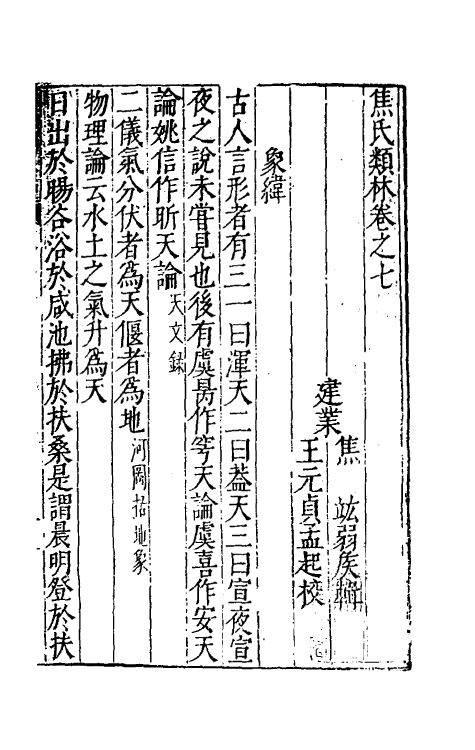 焦氏類林卷之七
建業
焦竑弱侯輯
王元貞孟起校
象緯
古人言形者有三一曰渾天二曰葢天三曰宣夜宣
夜之說未嘗見也後有虞昺作穹天論虞喜作安天
論姚信作昕天論天文錄
二儀氣分伏者爲天偃者爲地河圖括地象
物理論云水土之氣升爲天
日出於暘谷浴於咸池拂於扶桑是謂晨明登於扶